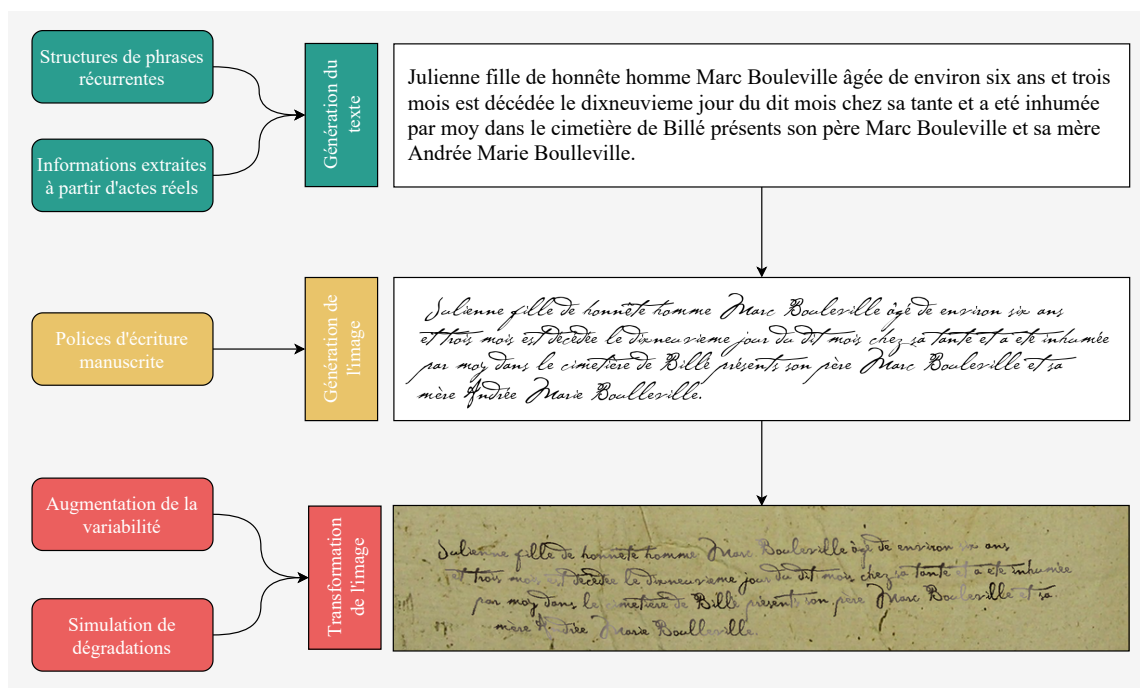 Structures de phrases
récurrentes
Informations extraites
à partir d'actes réels
Génération du
texte
Julienne fille de honnête homme Marc Bouleville âgée de environ six ans et trois
mois est décédée le dixneuvieme jour du dit mois chez sa tante et a eté inhumée
par moy dans le cimetière de Billé présents son père Marc Bouleville et sa mère
Andrée Marie Boulleville.
Polices d'écriture
manuscrite
Génération de
l'image
Julienne fille de honnête homme Marc Bouleville âgé de environ six ans
et trois mois est décédée le dixneuvieme jour du dit mois chez sa tante et a eté inhumée
par moy dans le cimetière de Billé présents son père Marc Bouleville et sa
mère Andrée Marie Boulleville.
Augmentation de la
variabilité
Simulation de
dégradations
Transformation
de l'image
Julienne fille de honnête homme Marc Bouleville âgé de environ six ans
et trois mois est décédée le dixneuvieme jour du dit mois chez sa tante et a eté inhumée
par moy dans le cimetière de Billé présents son père Marc Bouleville et sa
mère Andrée Marie Boulleville.